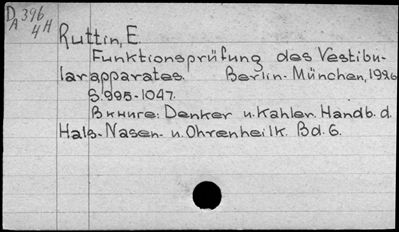 D 396
A 4H
Ruttin, E.
Funktionsprüfung des Vestibu-
larapparates. Berlin-München, 1926
S. 995-1047.
В книге: Denker u. Kahler. Handb. d.
Hals-Nasen- u. Ohrenheilk. Bd. 6.